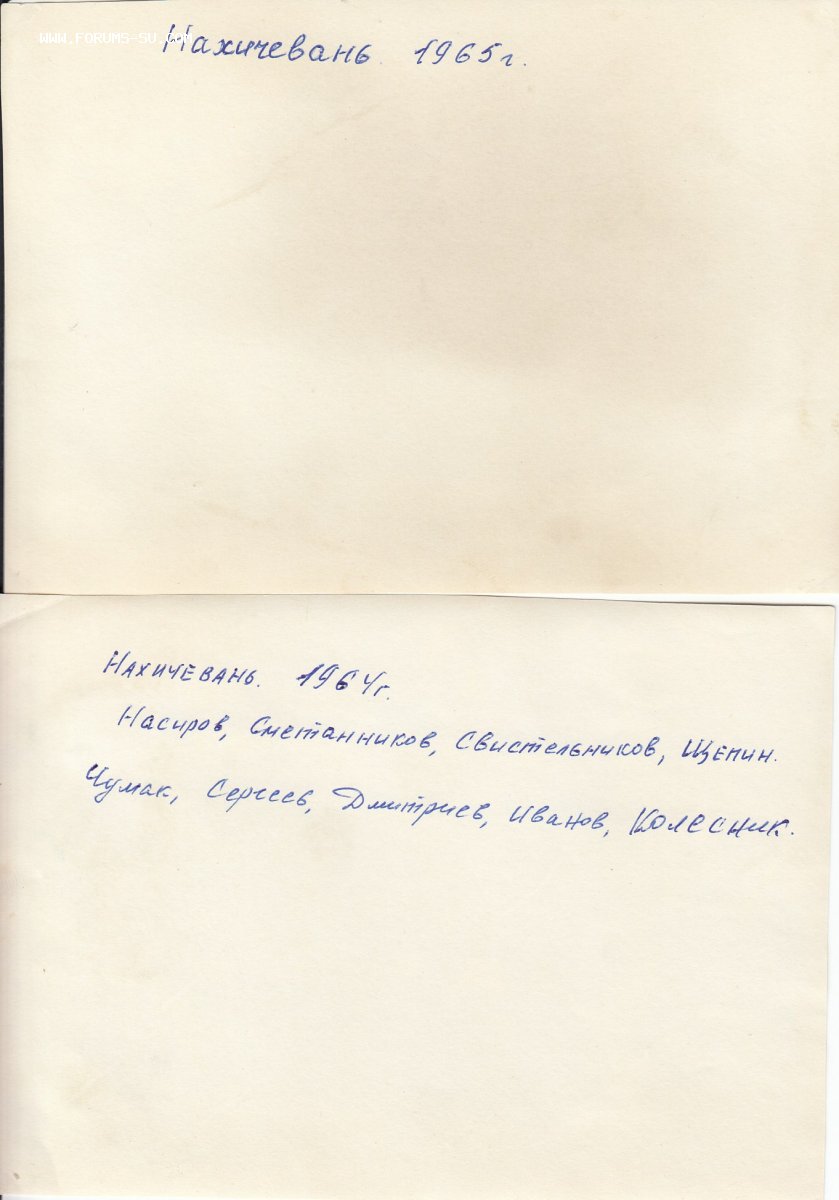 WWW.FORUMS-SU.COM
Нахичевань. 1965г.
Нахичевань. 1964г.
Насиров, Сметанников, Свистельников, Щепин.
Чумак, Сергеев, Дмитриев, Иванов, Колесник.